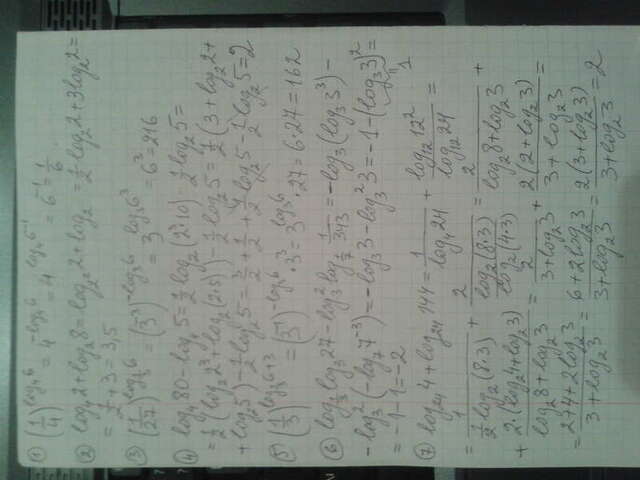 ① (1/4)^(log₄6) = 4^(-log₄6) = 4^(log₄6⁻¹) = 6⁻¹ = 1/6.
② log₄2 + log₂8 = log₂²2 + log₂ = 1/2 log₂2 + 3log₂2 =
= 1/2 + 3 = 3,5
③ (1/27)^(log₃6) = (3⁻³)^(-log₃6) = 3^(log₃6³) = 6³ = 216
④ log₄80 - log₄5 = 1/2 log₂(2³·10) - 1/2 log₂5 =
= 1/2 (log₂2³ + log₂(2·5)) - 1/2 log₂5 = 1/2 (3 + log₂2 +
+ log₂5) - 1/2 log₂5 = 3/2 + 1/2 + 1/2 log₂5 - 1/2 log₂5 = 2
⑤ (1/3)^(log₃6+3) = (3⁻¹)^(-log₃6) · 3³ = 3^(log₃6) · 27 = 6·27 = 162
⑥ log₃log₃27 - log₃²log_(1/7) 1/343 = -log₃(log₃3³) -
- log₃²(-log₇7⁻³) = -log₃3 - log₃²3 = -1 - (log₃3)² =
= -1 - 1 = -2
⑦ log₂₄4 + log₂₄144 = 1/(log₄24) + (log₁₂12²)/(log₁₂24) =
= 1/(1/2 log₂(8·3)) + 2/(log₂(8·3)/log₂(4·3)) = 2/(log₂8 + log₂3) +
+ 2·(log₂4 + log₂3)/(log₂8 + log₂3) = 2/(3 + log₂3) + 2(2 + log₂3)/(3 + log₂3) =
= (2 + 4 + 2log₂3)/(3 + log₂3) = (6 + 2log₂3)/(3 + log₂3) = 2(3 + log₂3)/(3 + log₂3) = 2